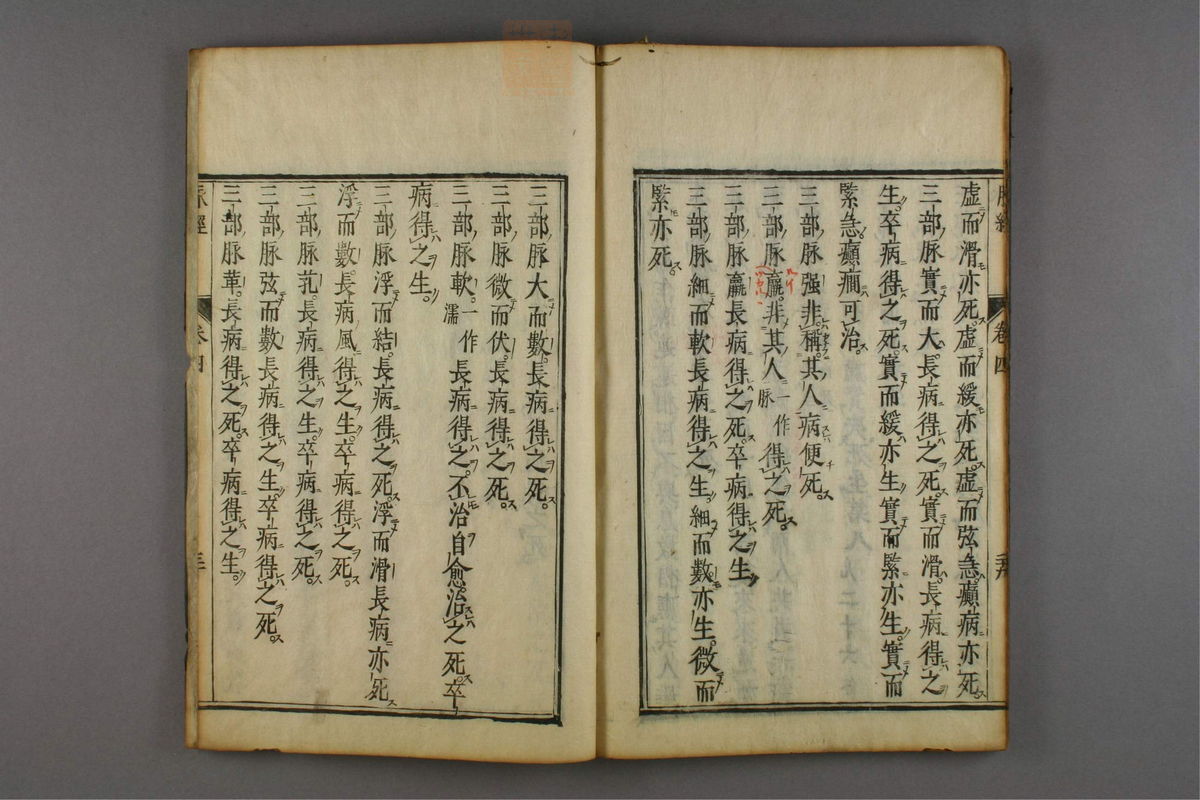 脉經 卷四
虛而滑亦死。虛而緩亦死。虛而弦急癲病亦死。
三部脉實而大。長病得之死。實而滑。長病得之
生。卒病得之死。實而緩亦生。實而緊亦生。實而
緊急癲癇可治。
三部脉强。非稱其人病便死。
三部脉羸。非其人一作脉得之死。
三部脉麤。長病得之死。卒病得之生。
三部脉細而軟。長病得之生。細而數亦生。微而
緊亦死。
三部脉大而數。長病得之死。
三部脉微而伏。長病得之死。
三部脉軟。一作濡長病得之。不治自愈。治之死。卒
病得之生。
三部脉浮而結。長病得之死。浮而滑。長病亦死。
浮而數。長病風得之生。卒病得之死。
三部脉芤。長病得之生。卒病得之死。
三部脉弦而數。長病得之生。卒病得之死。
三部脉革。長病得之死。卒病得之生。
脉經 卷四